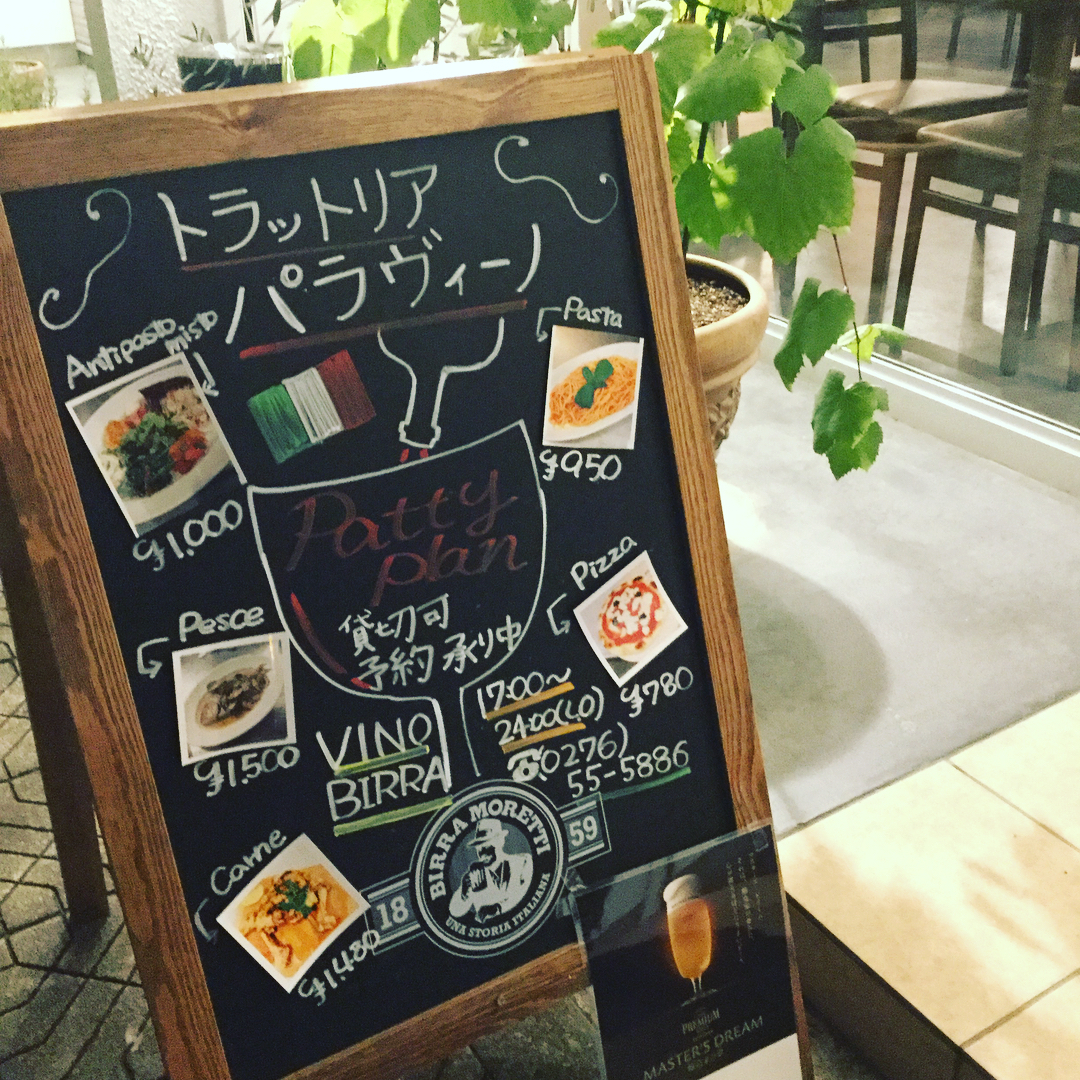 トラットリア
パラヴィーノ
Antipasto
misto
¥1,000
Pasta
¥950
Patty
plan
貸切可
予約承り中
Pesce
¥1.500
Pizza
¥780
17:00~
24:00(L.O)
☎(0276)
55-5886
VINO
BIRRA
Carne
¥1,480
BIRRA MORETTI
18 59
UNA STORIA ITALIANA
PREMIUM
MASTER'S DREAM